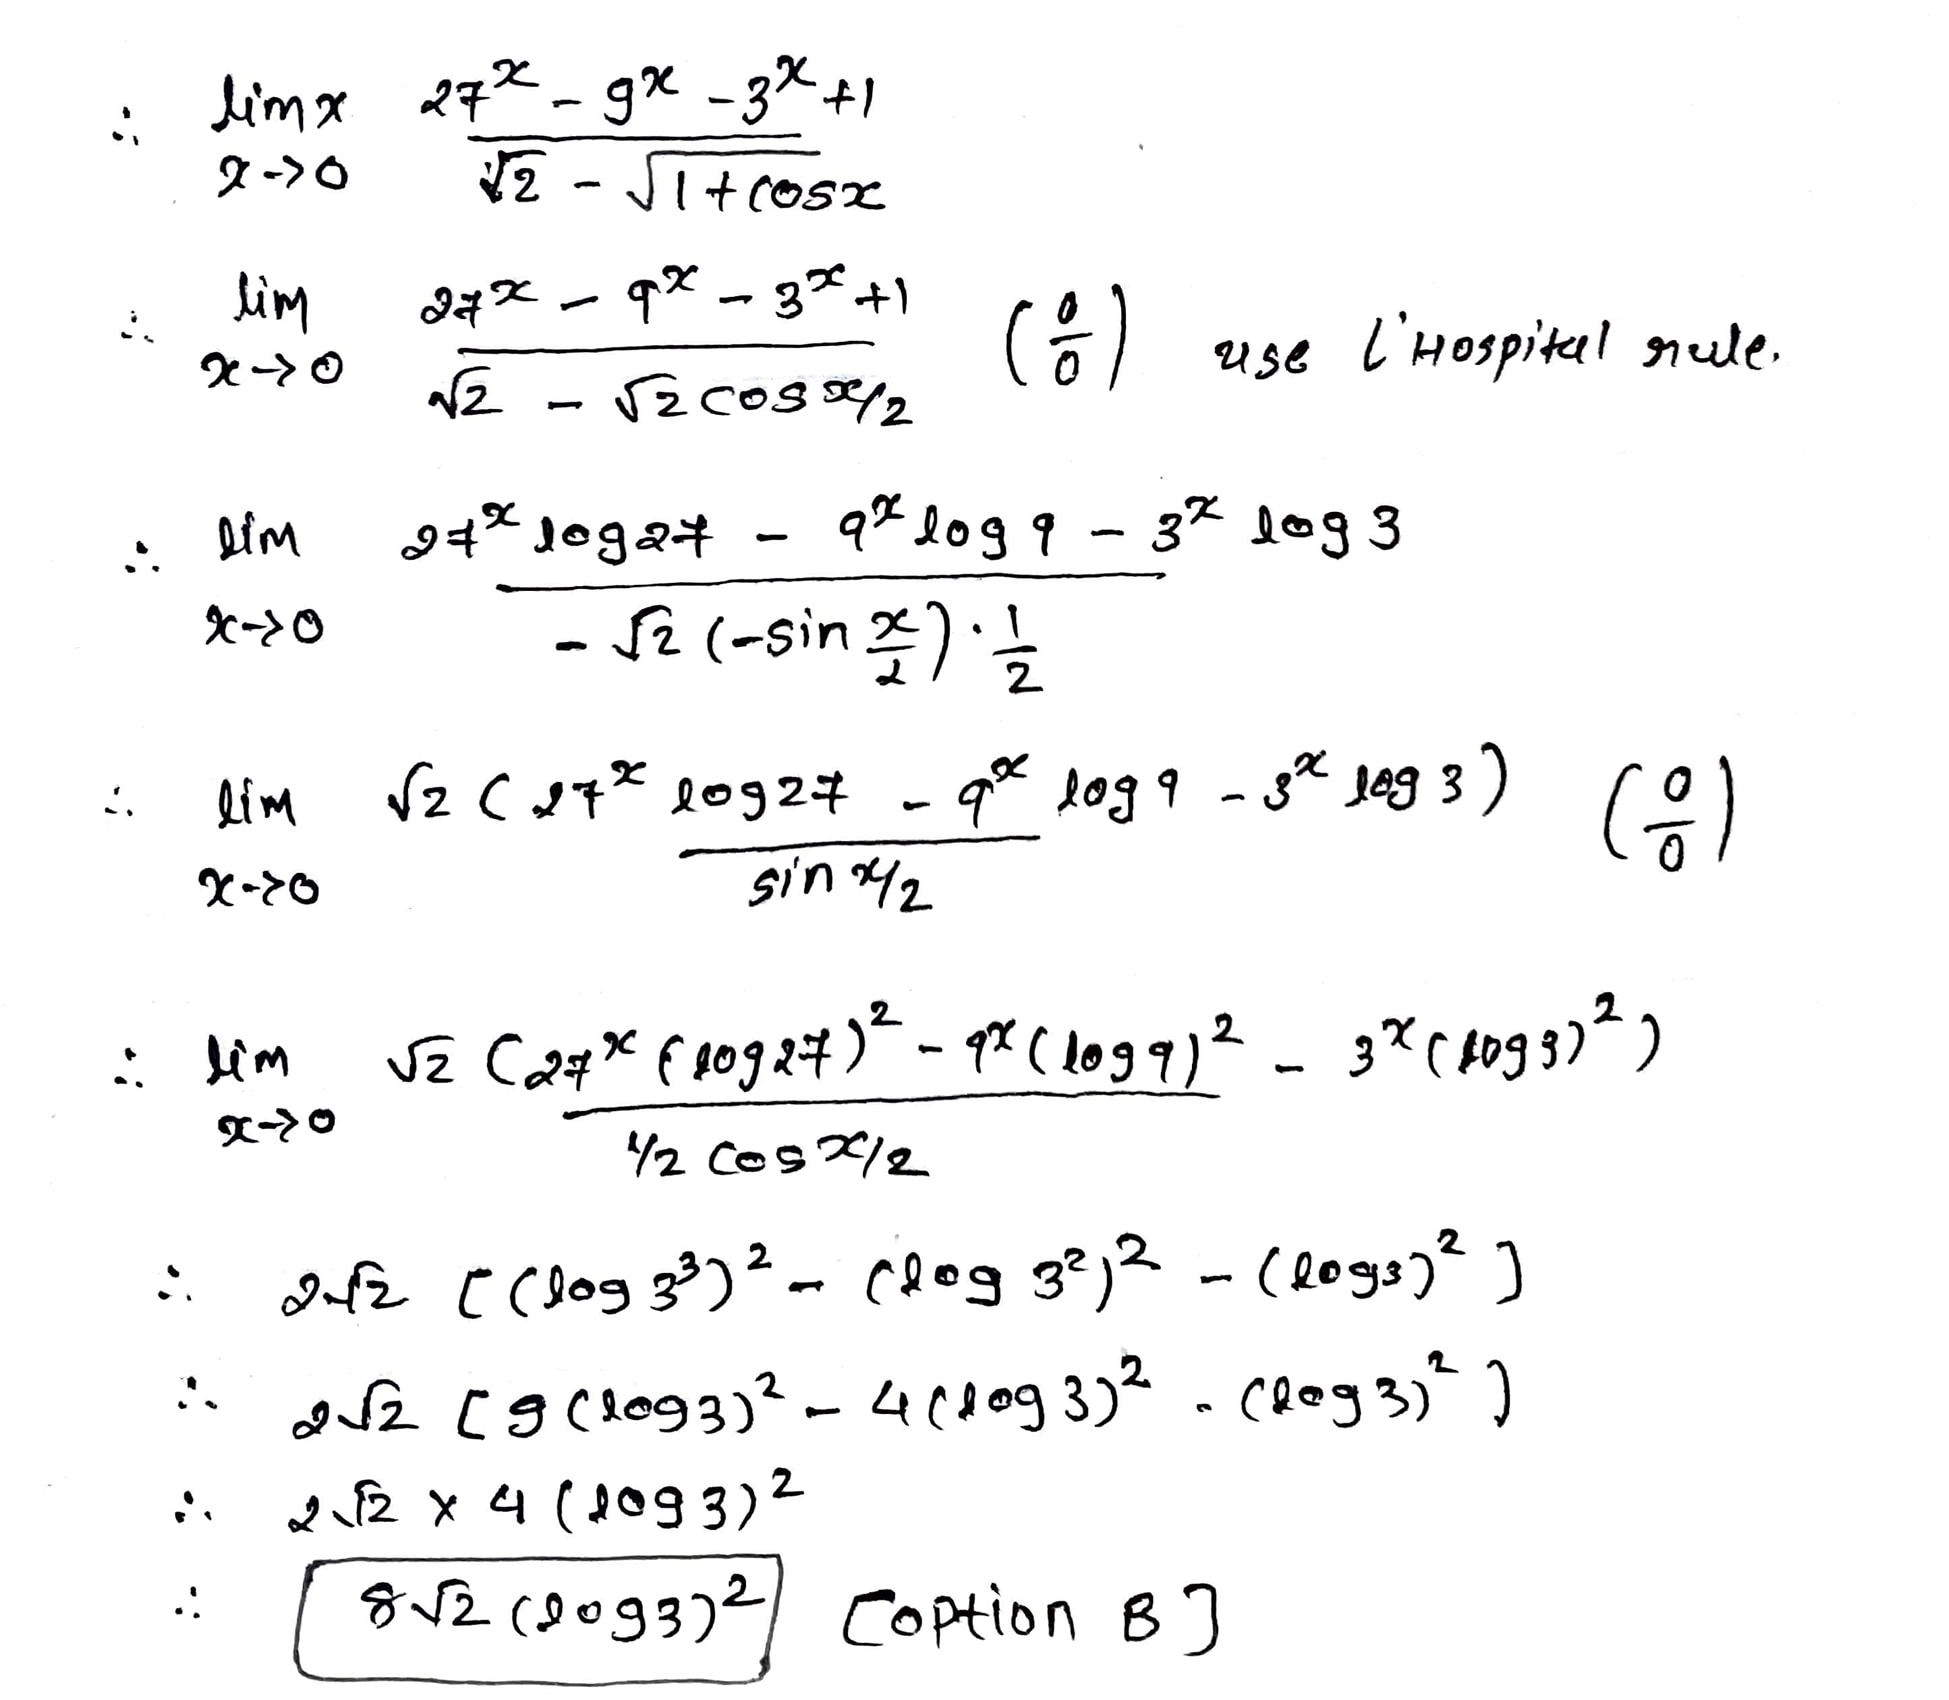 ∴ lim x 27^x - 9^x - 3^x + 1
x→0 √2 - √1+cosx
∴ lim 27^x - 9^x - 3^x + 1 (0/0) use l'Hospital rule.
x→0 √2 - √2 cos x/2
∴ lim 27^x log27 - 9^x log 9 - 3^x log 3
x→0 - √2 (-sin x/2) · 1/2
∴ lim √2 (27^x log27 - 9^x log 9 - 3^x log 3) (0/0)
x→0 sin x/2
∴ lim √2 (27^x (log27)^2 - 9^x (log 9)^2 - 3^x (log3)^2)
x→0 1/2 cos x/2
∴ 2√2 [(log 3^3)^2 - (log 3^2)^2 - (log3)^2]
∴ 2√2 [9(log3)^2 - 4(log3)^2 - (log3)^2]
∴ 2√2 x 4 (log3)^2
∴ 8√2 (log3)^2 [option B]